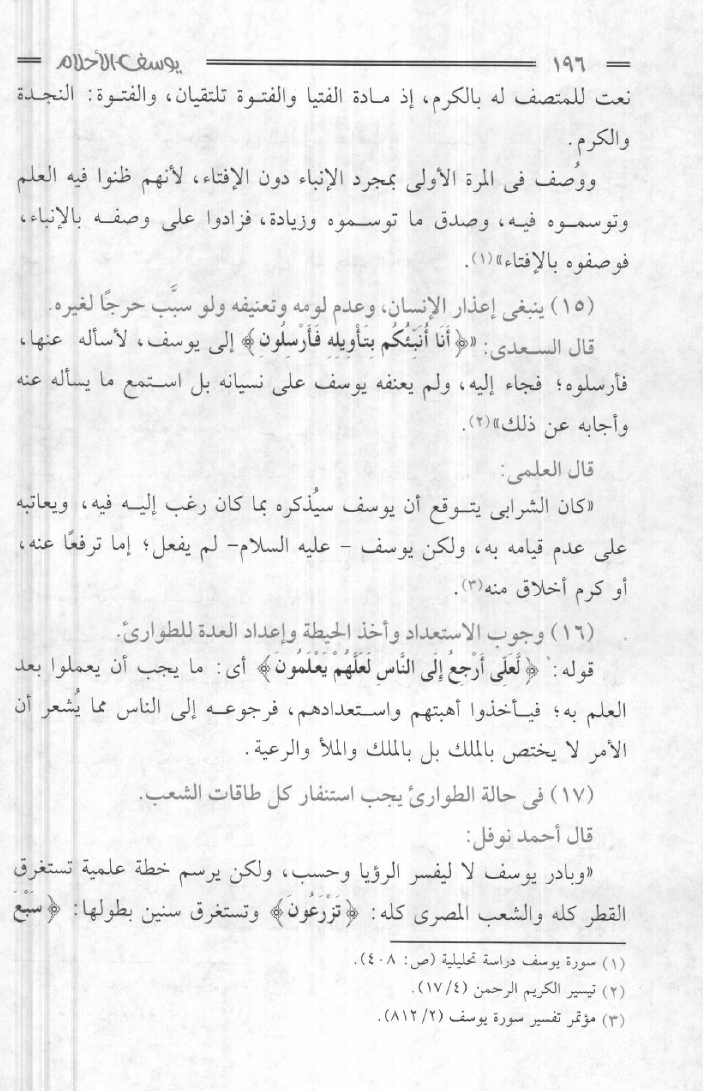 ١٩٦ يوسف الأحلام
نعت للمتصف له بالكرم، إذ مادة الفتيا والفتوة تلتقيان، والفتوة: النجدة
والكرم.
ووُصف فى المرة الأولى بمجرد الإنباء دون الإفتاء، لأنهم ظنوا فيه العلم
وتوسموه فيه، وصدق ما توسموه وزيادة، فزادوا على وصفه بالإنباء،
فوصفوه بالإفتاء»(١).
(١٥) ينبغى إعذار الإنسان، وعدم لومه وتعنيفه ولو سبَّب حرجًا لغيره.
قال السعدى: «﴿أَنَا أُنَبِّئُكُم بِتَأْوِيلِهِ فَأَرْسِلُونِ﴾ إلى يوسف، لأسأله عنها،
فأرسلوه؛ فجاء إليه، ولم يعنفه يوسف على نسيانه بل استمع ما يسأله عنه
وأجابه عن ذلك»(٢).
قال العلمى:
«كان الشرابى يتوقع أن يوسف سيُذكره بما كان رغب إليه فيه، ويعاتبه
على عدم قيامه به، ولكن يوسف - عليه السلام- لم يفعل؛ إما ترفعًا عنه،
أو كرم أخلاق منه(٣).
(١٦) وجوب الاستعداد وأخذ الحيطة وإعداد العدة للطوارئ.
قوله: ﴿لَّعَلِّى أَرْجِعُ إِلَى النَّاسِ لَعَلَّهُمْ يَعْلَمُونَ﴾ أى: ما يجب أن يعملوا بعد
العلم به؛ فيأخذوا أهبتهم واستعدادهم، فرجوعه إلى الناس مما يُشعر أن
الأمر لا يختص بالملك بل بالملك والملأ والرعية.
(١٧) فى حالة الطوارئ يجب استنفار كل طاقات الشعب.
قال أحمد نوفل:
«وبادر يوسف لا ليفسر الرؤيا وحسب، ولكن يرسم خطة علمية تستغرق
القطر كله والشعب المصرى كله: ﴿تَزْرَعُونَ﴾ وتستغرق سنين بطولها: ﴿سَبْعَ
(١) سورة يوسف دراسة تحليلية (ص: ٤٠٨).
(٢) تيسير الكريم الرحمن (١٧/٤).
(٣) مؤتمر تفسير سورة يوسف (٨١٢/٢).